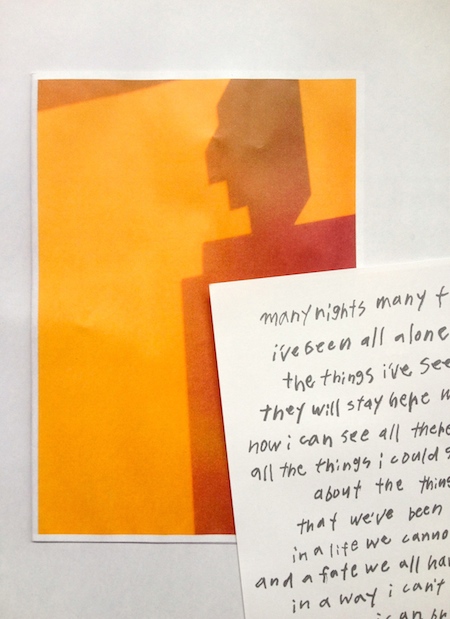 many nights many
i've been all alone
the things i've see
they will stay here
now i can see all there
all the things i could
about the thing
that we've been
in a life we canno
and a fate we all ha
in a way i can't
i can